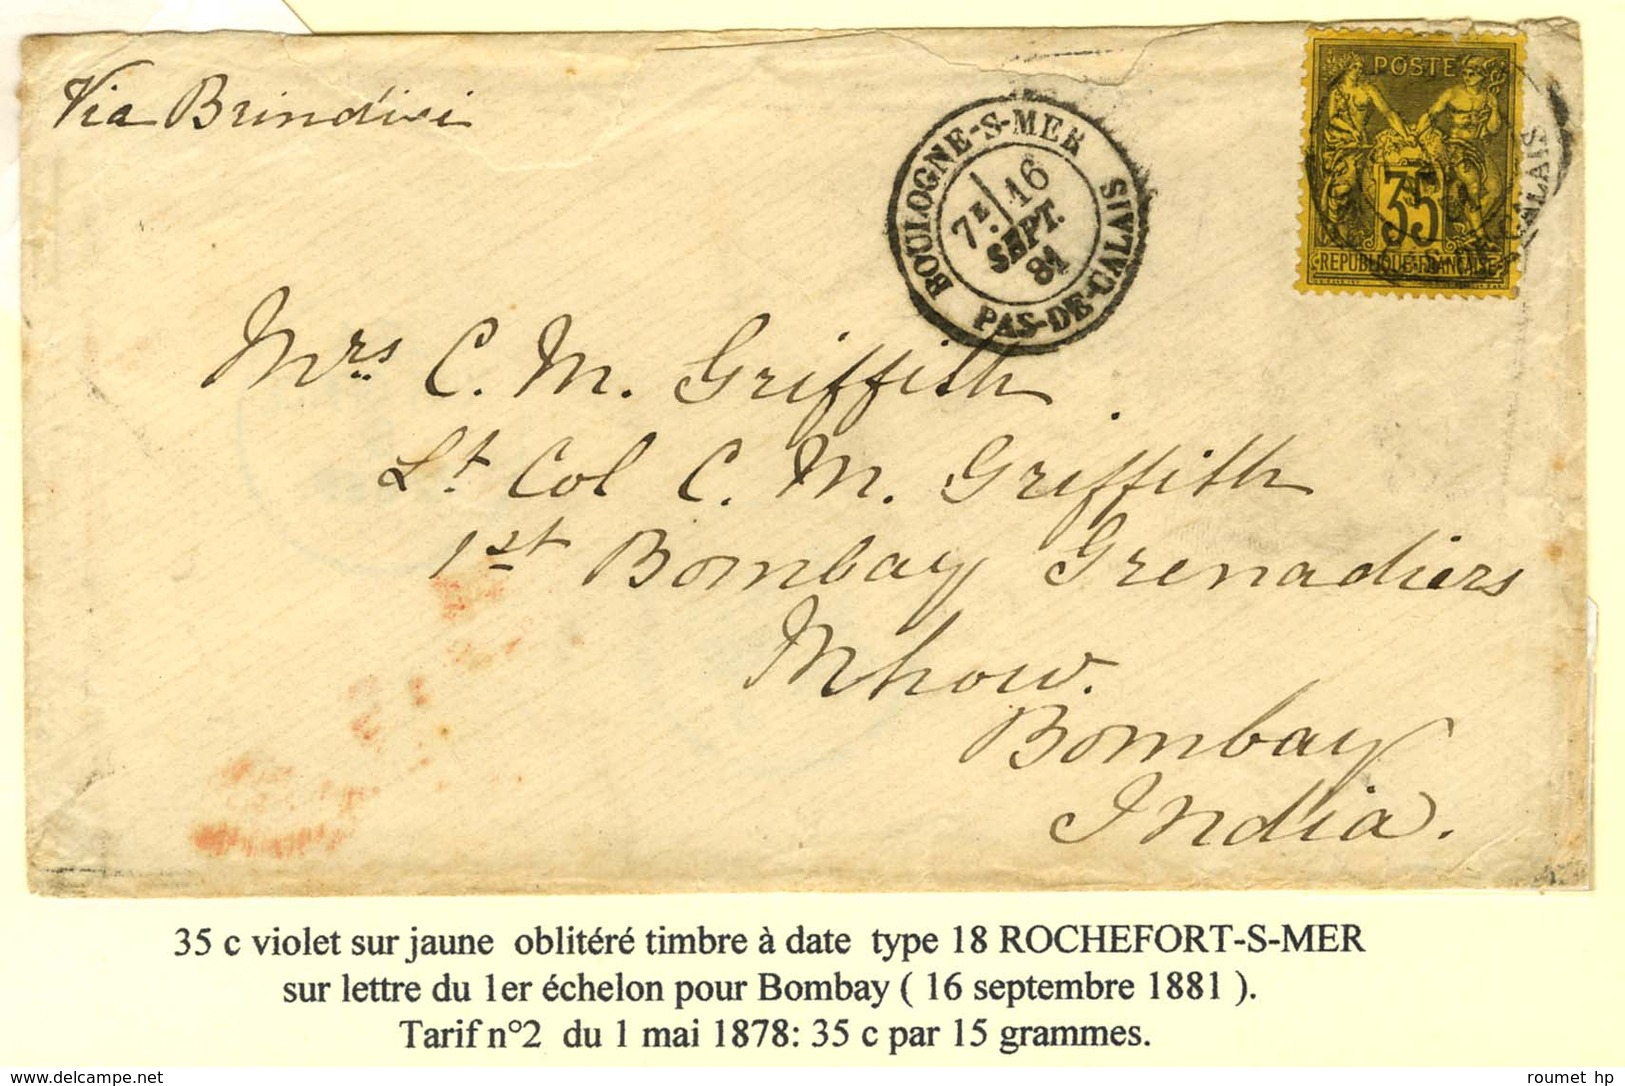 Via Brindisi
BOULOGNE-S-MER
7E 16
SEPT.
81
PAS-DE-CALAIS
POSTE
35
REPUBLIQUE FRANCAISE
CALAIS
Mrs C. M. Griffith
Lt Col C. M. Griffith
1st Bombay Grenadiers
Mhow.
Bombay
India.
35 c violet sur jaune oblitéré timbre à date type 18 ROCHEFORT-S-MER
sur lettre du 1er échelon pour Bombay ( 16 septembre 1881 ).
Tarif n°2 du 1 mai 1878: 35 c par 15 grammes.
delcampe.net
roumet hp